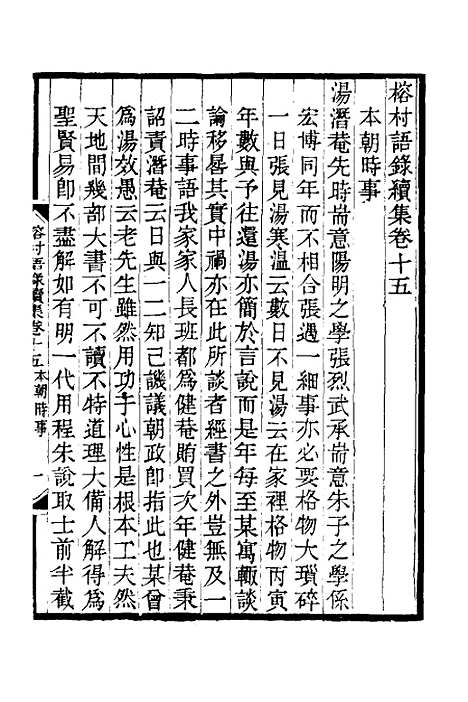 榕村語錄續集卷十五
本朝時事
湯潛菴先時耑意陽明之學張烈武承耑意朱子之學係
宏博同年而不合張遇一細事亦必要格物大瑣碎
一日張見湯寒溫云數日不見湯云在家裡格物丙寅
年數與予往還湯亦簡於言說而是年每至某寓輙談
論移晷其實中禍亦在此所談者經書之外豈無及一
二時事語我家家人長班都為健菴賄買次年健菴秉
詔責潛菴云日與一二知己譏議朝政卽指此也某曾
為湯效愚云老先生雖然用功于心性是根本工夫然
天地間幾部大書不可不讀不特道理大備人解得為
聖賢易卽不盡解如有明一代用程朱說取士前半截
榕村語錄續集卷十五 本朝時事 一